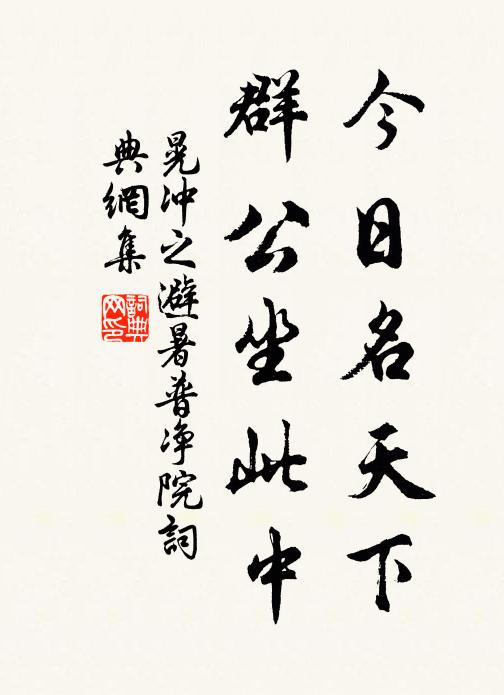 今日名天下
群公坐此中
晁沖之避暑普净院詞
典網集
詞典网印